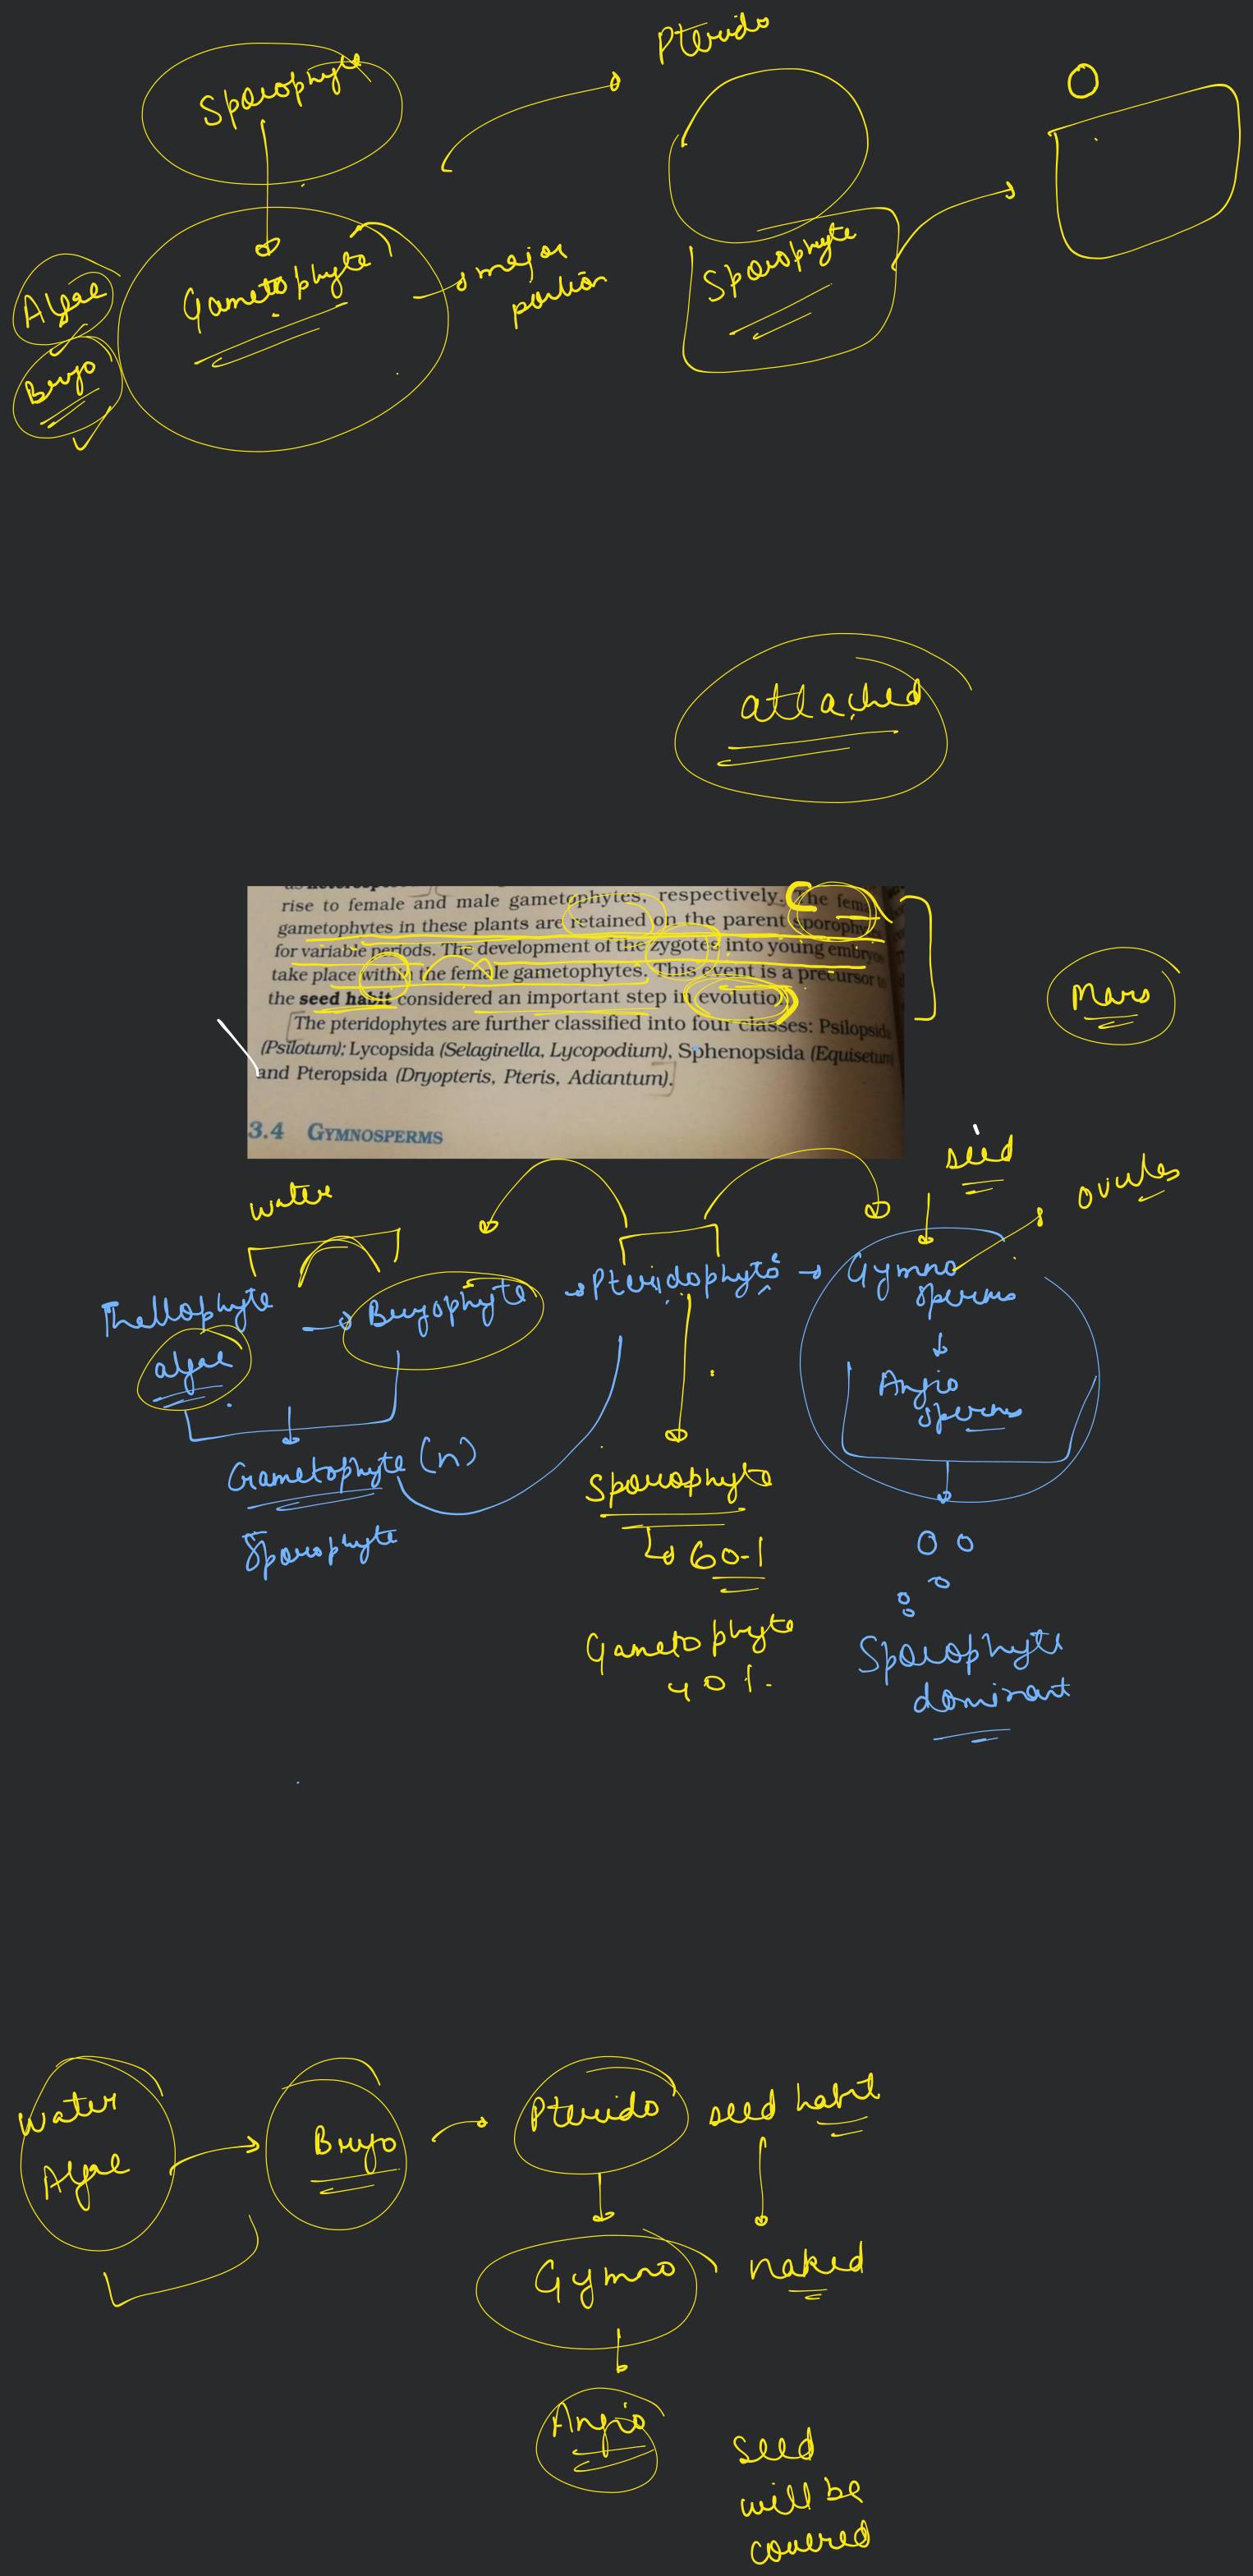 Pterido
Sporophyte
Gametophyte
major
portion
Algae
Bryo
Sporophyte
attached
rise to female and male gametophytes, respectively. The
gametophytes in these plants are retained on the parent
for variable periods. The development of the zygotes into young embryos
take place within the female gametophytes. This event is a precursor to
the seed habit considered an important step in evolution
The pteridophytes are further classified into four classes: Psilopsida
(Psilotum); Lycopsida (Selaginella, Lycopodium), Sphenopsida (Equisetum)
and Pteropsida (Dryopteris, Pteris, Adiantum).
3.4 GYMNOSPERMS
Mars
seed
ovules
water
Thallophyte
algae
Bryophyte
Pteridophyte
Gymno
sperms
Angio
sperms
Gametophyte (n)
Sporophyte
Sporophyte
60%
Gametophyte
40%
Sporophyte
dominant
Water
Algae
Bryo
Pterido
seed habit
Gymno
naked
Angio
seed
will be
covered